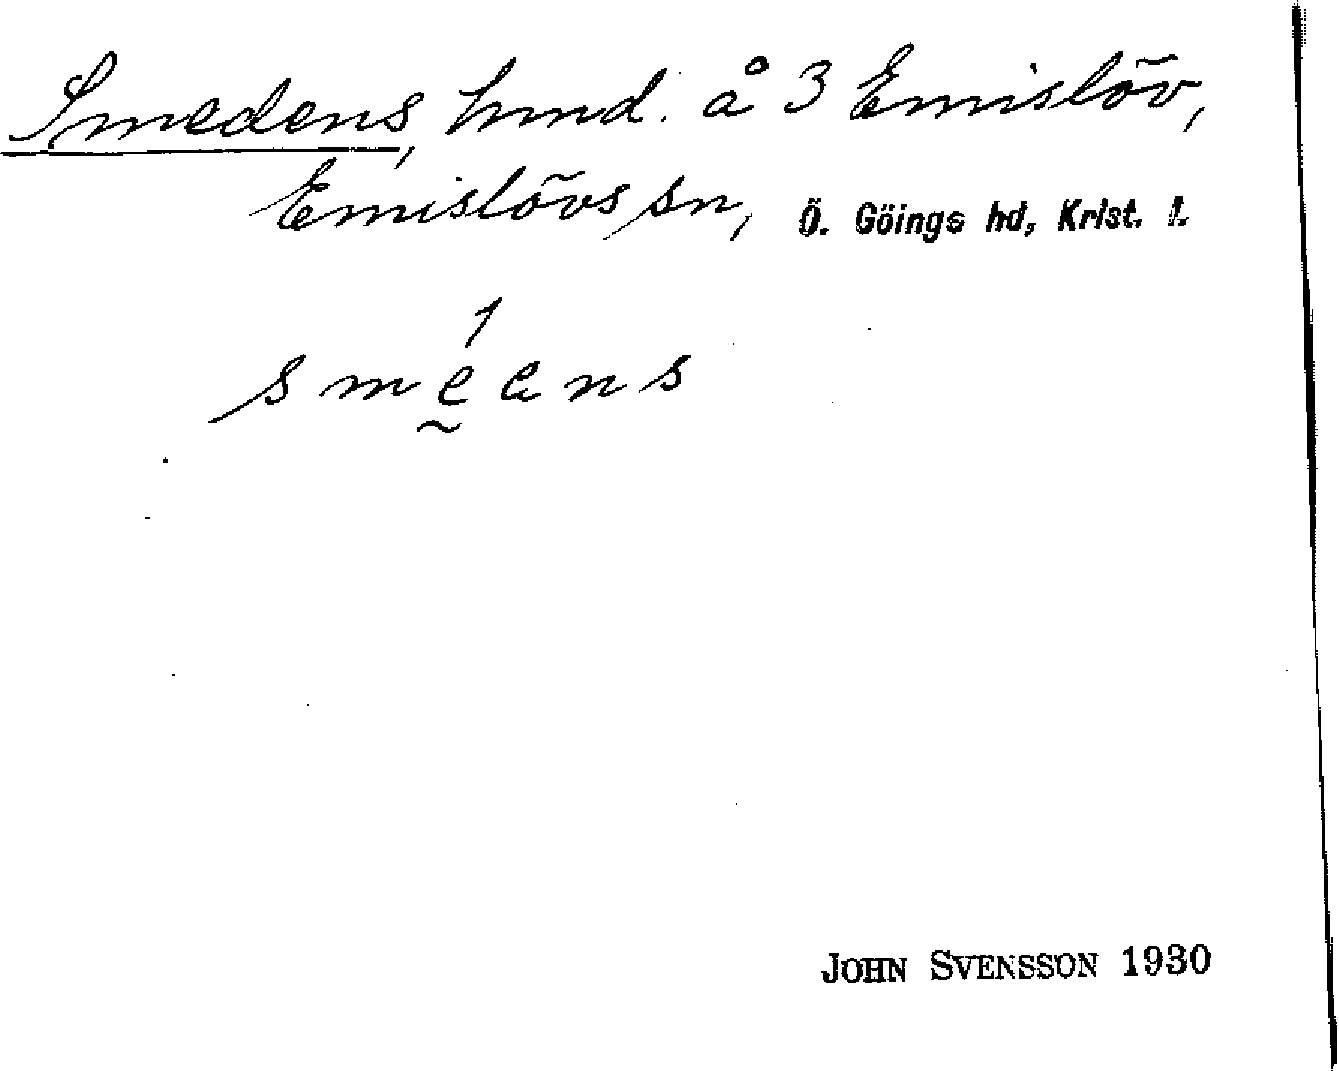 Smedens, hmd. å 3 Emislöv,
Emislövs sn, Ö. Göings hd, Krist. l.
1
smeens
JOHN SVENSSON 1930